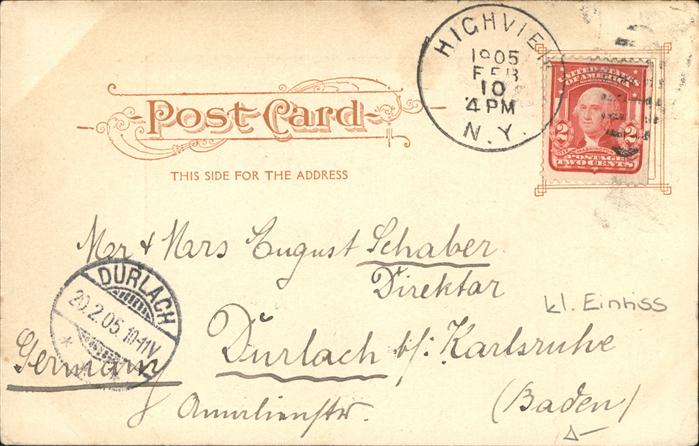 HIGHVIEW
1905
FEB
10
4 PM
N.Y.
UNITED STATES
OF AMERICA
2 2
POSTAGE
TWO CENTS
Post Card
THIS SIDE FOR THE ADDRESS
Mr & Mrs August Schaber
Direktor
kl. Einriss
DURLACH
20.2.05.10-11V
Durlach b/: Karlsruhe
Germany
Amalienstr.
(Baden)